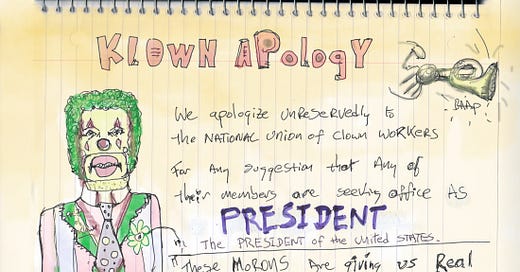 KLOWN APologY
We apologize unreservedly to
the NATIONAL UNION of Clown WORKERS
BAAP
For Any suggestion that Any of
their members are seeking office As
PRESIDENT
The PRESIDENT of the United STATES.
These MORONS Are giving us Real